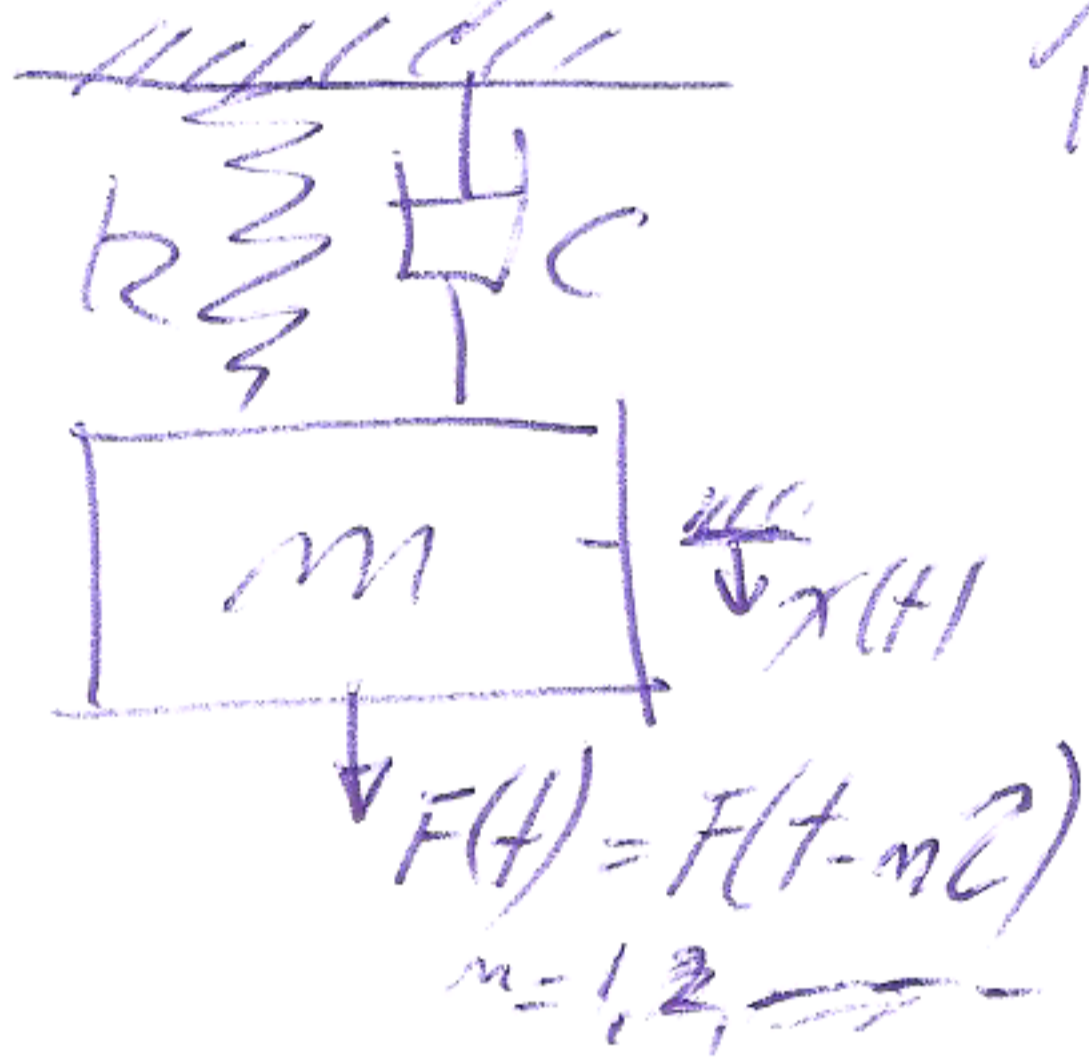 k
c
m
x(t)
F(t) = F(t-nτ)
n=1,2,